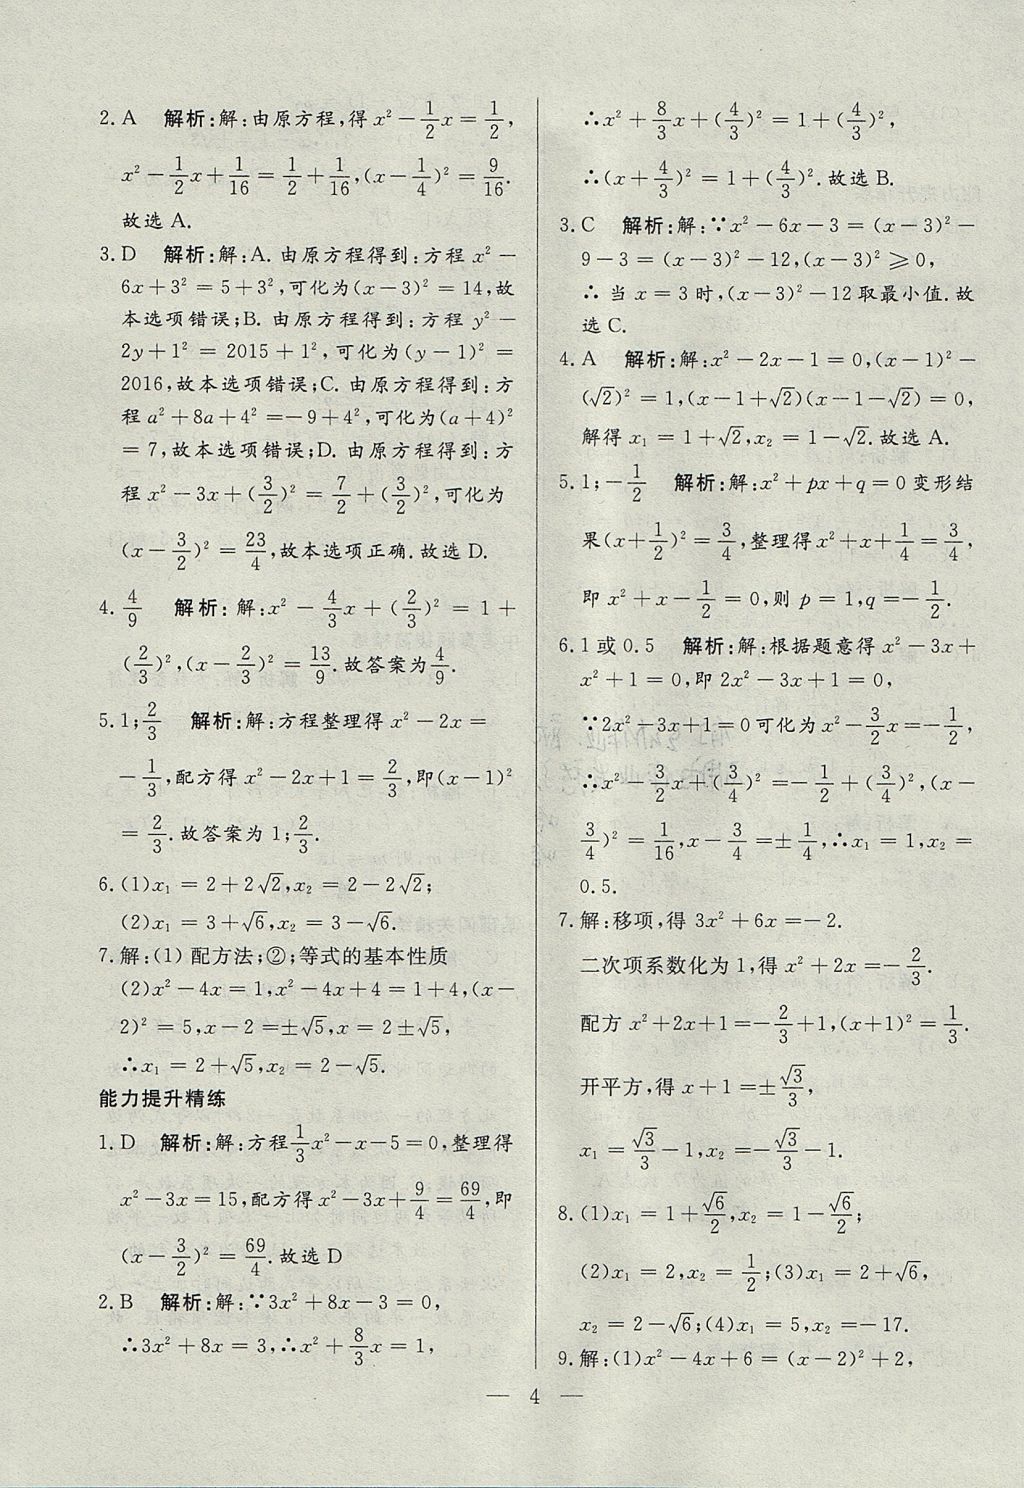 2. A 解析:解:由原方程,得 x² − 1/2 x = 1/2,
x² − 1/2 x + 1/16 = 1/2 + 1/16, (x − 1/4)² = 9/16.
故选 A.
3. D 解析:解:A. 由原方程得到:方程 x² −
6x + 3² = 5 + 3², 可化为(x − 3)² = 14, 故
本选项错误;B. 由原方程得到:方程 y² −
2y + 1² = 2015 + 1², 可化为(y − 1)² =
2016, 故本选项错误;C. 由原方程得到:方
程 a² + 8a + 4² = −9 + 4², 可化为(a + 4)²
= 7, 故本选项错误;D. 由原方程得到:方
程 x² − 3x + (3/2)² = 7/2 + (3/2)², 可化为
(x − 3/2)² = 23/4, 故本选项正确. 故选 D.
4. 4/9 解析:解:x² − 4/3 x + (2/3)² = 1 +
(2/3)², (x − 2/3)² = 13/9. 故答案为 4/9.
5. 1; 2/3 解析:解:方程整理得 x² − 2x =
− 1/3, 配方得 x² − 2x + 1 = 2/3, 即(x − 1)²
= 2/3. 故答案为 1; 2/3.
6. (1)x₁ = 2 + 2√2, x₂ = 2 − 2√2;
(2)x₁ = 3 + √6, x₂ = 3 − √6.
7. 解:(1) 配方法;②;等式的基本性质
(2)x² − 4x = 1, x² − 4x + 4 = 1 + 4, (x −
2)² = 5, x − 2 = ±√5, x = 2 ± √5,
∴x₁ = 2 + √5, x₂ = 2 − √5.
能力提升精练
1. D 解析:解:方程 1/3 x² − x − 5 = 0, 整理得
x² − 3x = 15, 配方得 x² − 3x + 9/4 = 69/4, 即
(x − 3/2)² = 69/4. 故选 D
2. B 解析:解:∵3x² + 8x − 3 = 0,
∴3x² + 8x = 3, ∴x² + 8/3 x = 1,
∴x² + 8/3 x + (4/3)² = 1 + (4/3)²,
∴(x + 4/3)² = 1 + (4/3)². 故选 B.
3. C 解析:解:∵x² − 6x − 3 = (x − 3)² −
9 − 3 = (x − 3)² − 12, (x − 3)² ⩾ 0,
∴ 当 x = 3 时, (x − 3)² − 12 取最小值. 故
选 C.
4. A 解析:解:x² − 2x − 1 = 0, (x − 1)² −
(√2)² = 1, (x − 1 + √2)(x − 1 − √2) = 0,
解得 x₁ = 1 + √2, x₂ = 1 − √2. 故选 A.
5. 1; − 1/2 解析:解:x² + px + q = 0 变形结
果(x + 1/2)² = 3/4, 整理得 x² + x + 1/4 = 3/4,
即 x² + x − 1/2 = 0, 则 p = 1, q = − 1/2.
6. 1 或 0.5 解析:解:根据题意得 x² − 3x +
x² + 1 = 0, 即 2x² − 3x + 1 = 0,
∵2x² − 3x + 1 = 0 可化为 x² − 3/2 x = − 1/2,
∴x² − 3/2 x + (3/4)² = − 1/2 + (3/4)², (x −
3/4)² = 1/16, x − 3/4 = ± 1/4, ∴x₁ = 1, x₂ =
0.5.
7. 解:移项,得 3x² + 6x = −2.
二次项系数化为 1, 得 x² + 2x = − 2/3.
配方 x² + 2x + 1 = − 2/3 + 1, (x + 1)² = 1/3.
开平方,得 x + 1 = ± √3/3,
x₁ = √3/3 − 1, x₂ = − √3/3 − 1.
8. (1)x₁ = 1 + √6/2, x₂ = 1 − √6/2;
(2)x₁ = 2, x₂ = 1/2; (3)x₁ = 2 + √6,
x₂ = 2 − √6; (4)x₁ = 5, x₂ = −17.
9. 解:(1)x² − 4x + 6 = (x − 2)² + 2,
— 4 —